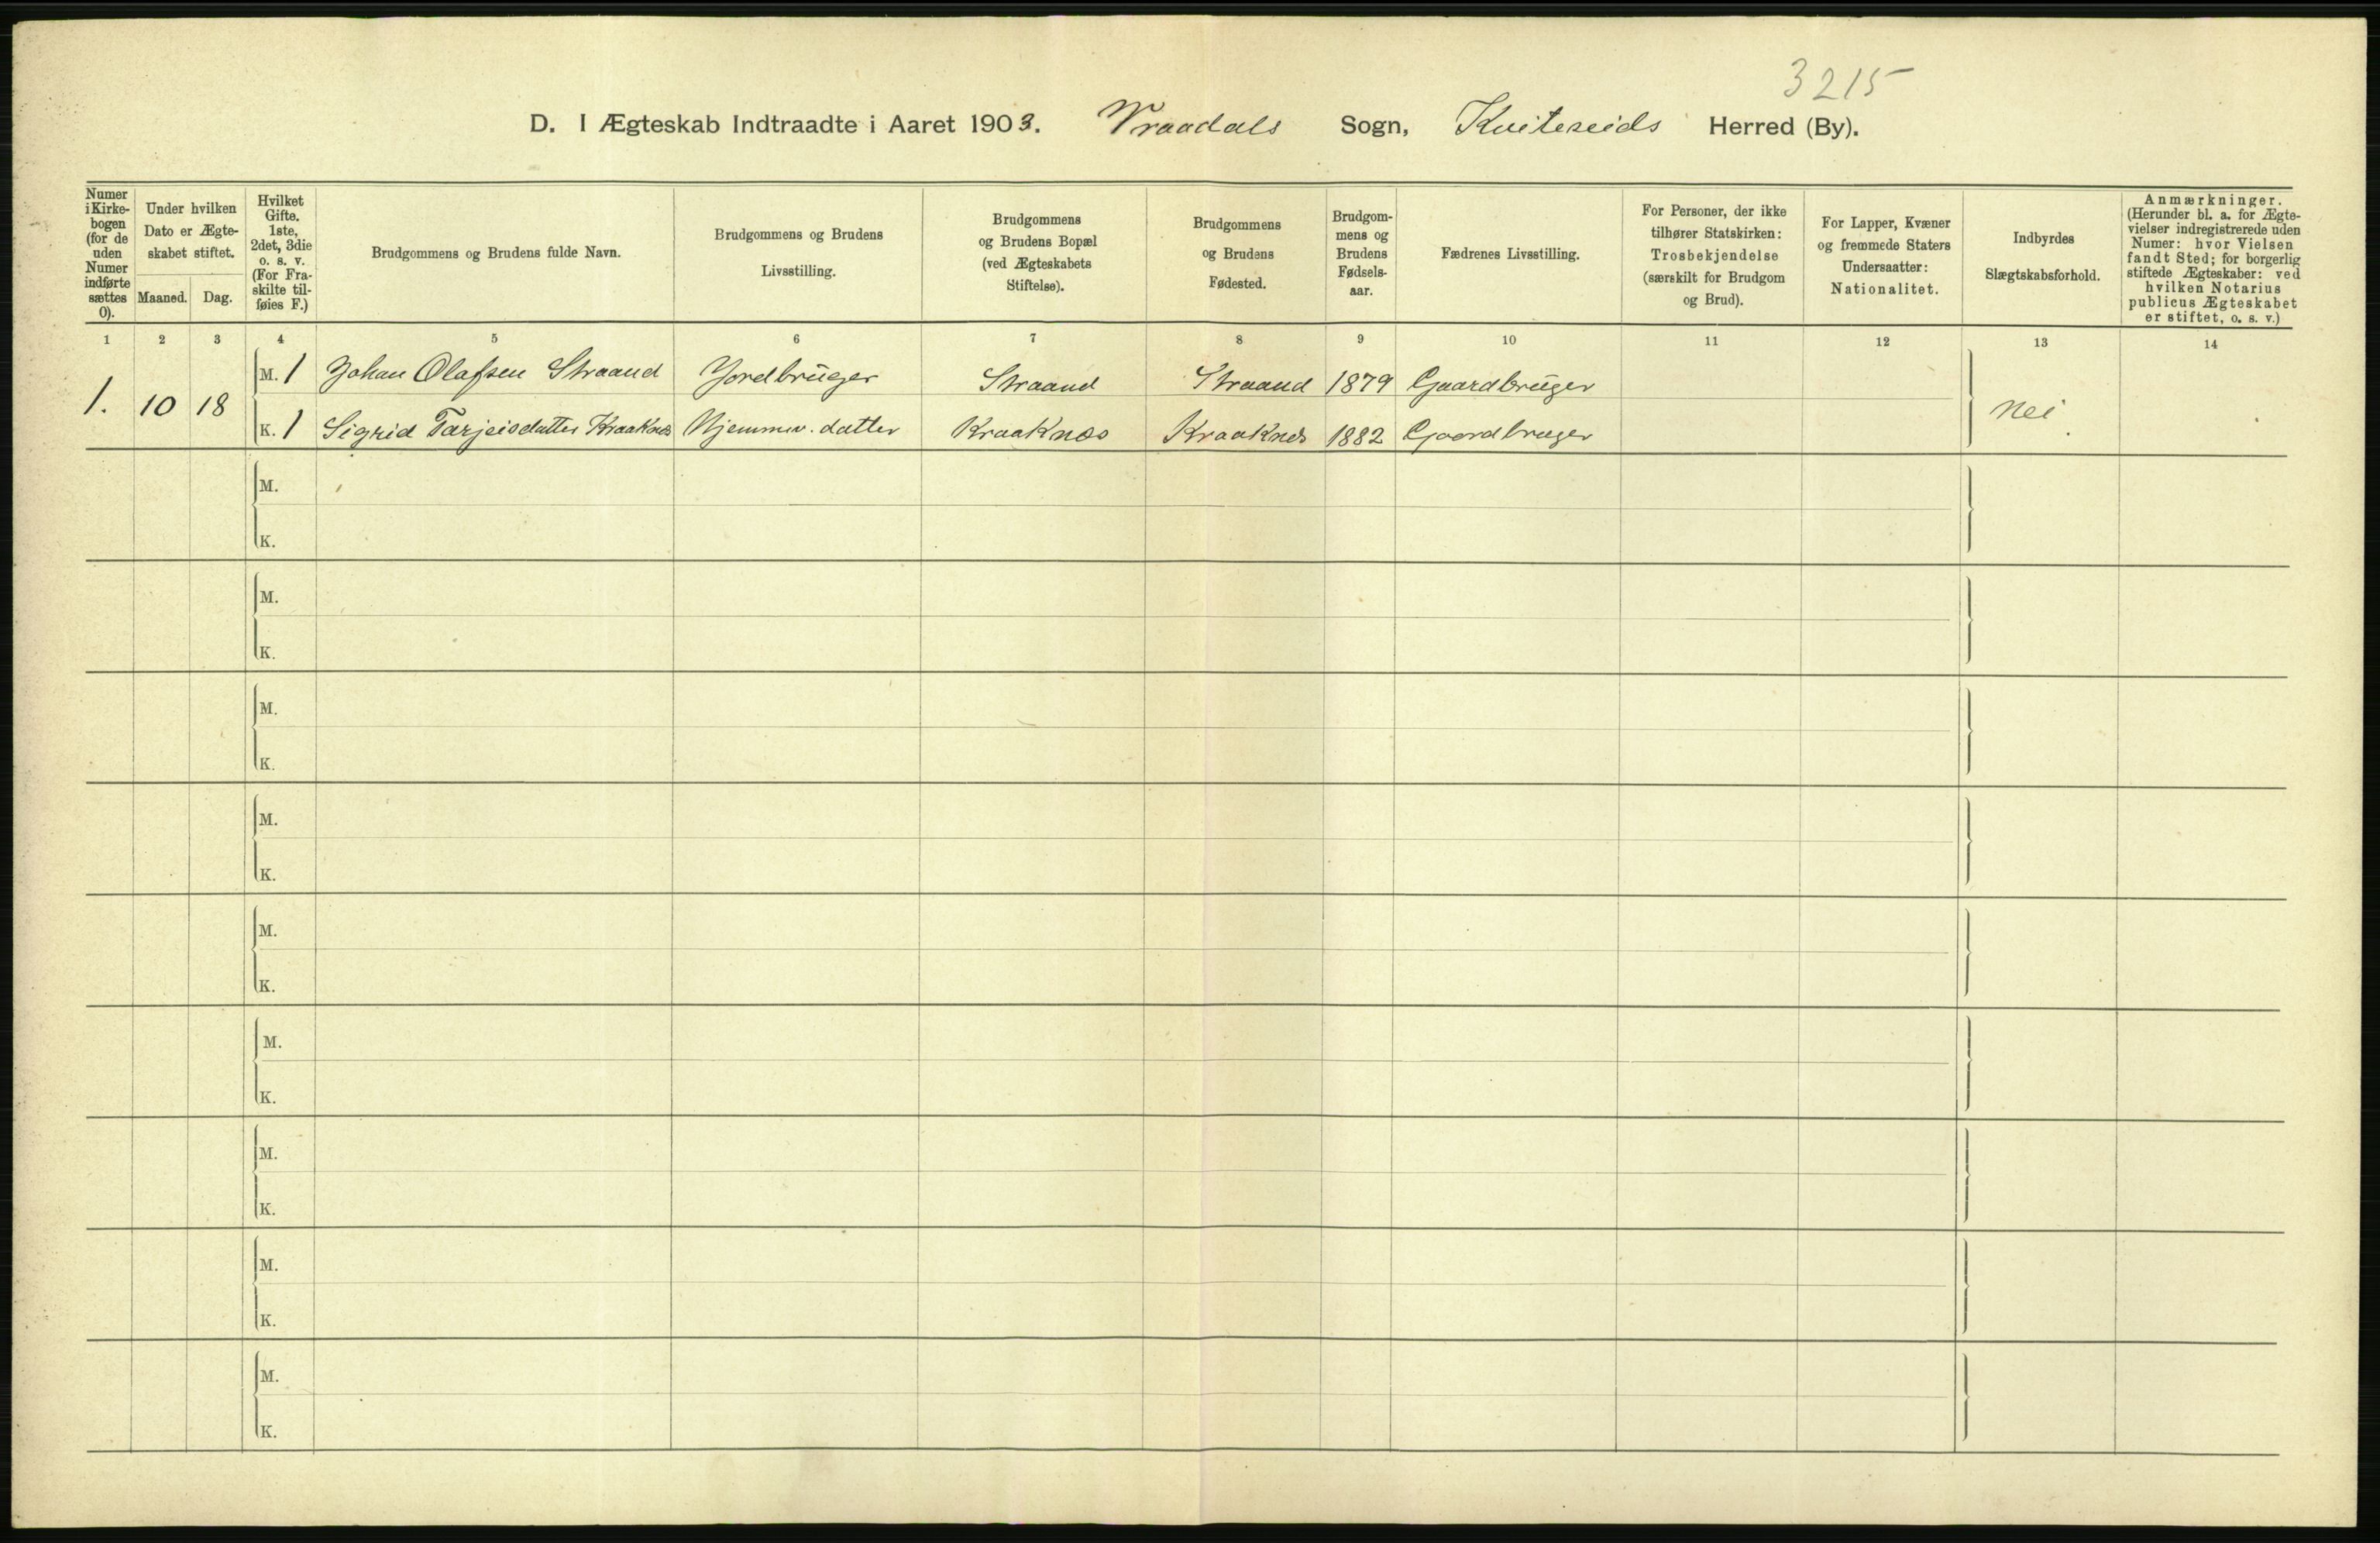 3215
D. I Ægteskab Indtraadte i Aaret 1903. Vraadals Sogn, Kviteseids Herred (By).
Numer
i Kirke-
bogen
(for de
uden
Numer
indførte
sættes
0).
Under hvilken
Dato er Ægte-
skabet stiftet.
Maaned. Dag.
Hvilket
Gifte.
1ste,
2det, 3die
o. s. v.
(For Fra-
skilte til-
føies F.)
Brudgommens og Brudens fulde Navn.
Brudgommens og Brudens
Livsstilling.
Brudgommens
og Brudens Bopæl
(ved Ægteskabets
Stiftelse).
Brudgommens
og Brudens
Fødested.
Brudgom-
mens og
Brudens
Fødsels-
aar.
Fædrenes Livsstilling.
For Personer, der ikke
tilhører Statskirken:
Trosbekjendelse
(særskilt for Brudgom
og Brud).
For Lapper, Kvæner
og fremmede Staters
Undersaatter:
Nationalitet.
Indbyrdes
Slægtskabsforhold.
Anmærkninger.
(Herunder bl. a. for Ægte-
vielser indregistrerede uden
Numer: hvor Vielsen
fandt Sted; for borgerlig
stiftede Ægteskaber: ved
hvilken Notarius
publicus Ægteskabet
er stiftet, o. s. v.)
1 2 3 4 5 6 7 8 9 10 11 12 13 14
M. 1 Johan Olafsen Straand Jordbruger Straand Straand 1879 Gaardbruger
1. 10 18 Nei
K. 1 Sigrid Tarjeisdatter Kraaknes Hjemmev. datter Kraaknes Kraaknes 1882 Gaardbruger
M.
K.
M.
K.
M.
K.
M.
K.
M.
K.
M.
K.
M.
K.
M.
K.
M.
K.